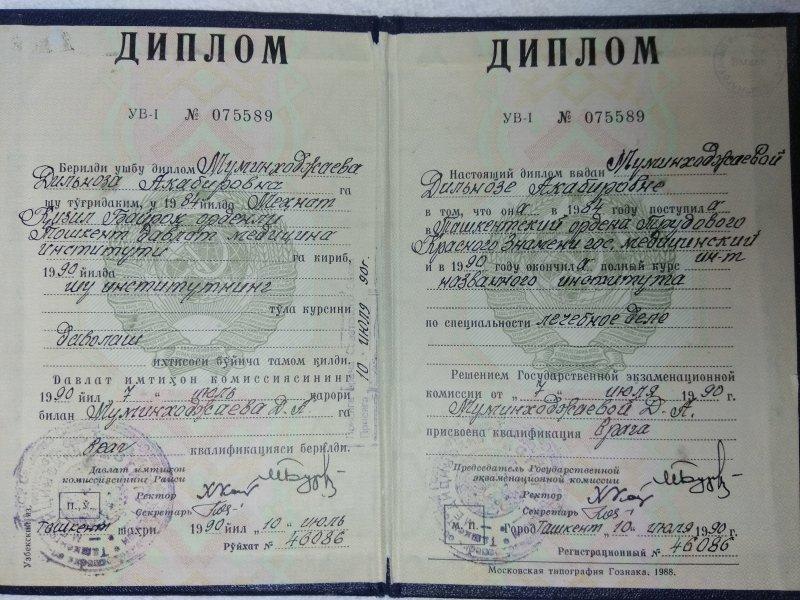 ДИПЛОМ
УВ-I № 075589
Берилди ушбу диплом Муминходжаева
Дильноза Акабировна га
шу тўғридаким, у 1984 йилда Меҳнат
Қизил Байроқ орденли
Тошкент Давлат медицина
институти га кириб,
1990 йилда
шу институтнинг
тўла курсини
Даволаш
ихтисоси бўйича тамом қилди.
Давлат имтиҳон комиссиясининг
1990 йил „7“ июль қарори
билан Муминходжаева Д.А. га
врач
квалификацияси берилди.
Давлат имтиҳон
комиссиянинг Раиси
Ректор
Секретарь
П.Ў.
Ташкент шаҳри. 1990 йил „10“ июль
Рўйхат № 46086
Узбекский яз.
10 июля 90г.
ДИПЛОМ
УВ-I № 075589
Настоящий диплом выдан Муминходжаевой
Дильнозе Акабировне
в том, что она в 1984 году поступила
в Ташкентский ордена Трудового
Красного Знамени гос. медицинский
ин-т
и в 1990 году окончила полный курс
названного института
по специальности лечебное дело
Решением Государственной экзаменационной
комиссии от „7“ июля 1990 г.
Муминходжаевой Д. А.
присвоена квалификация врача
Председатель Государственной
экзаменационной комиссии
Ректор
Секретарь
М. П.
Город Ташкент „10“ июля 1990 г.
Регистрационный № 46086
Московская типография Гознака. 1988.